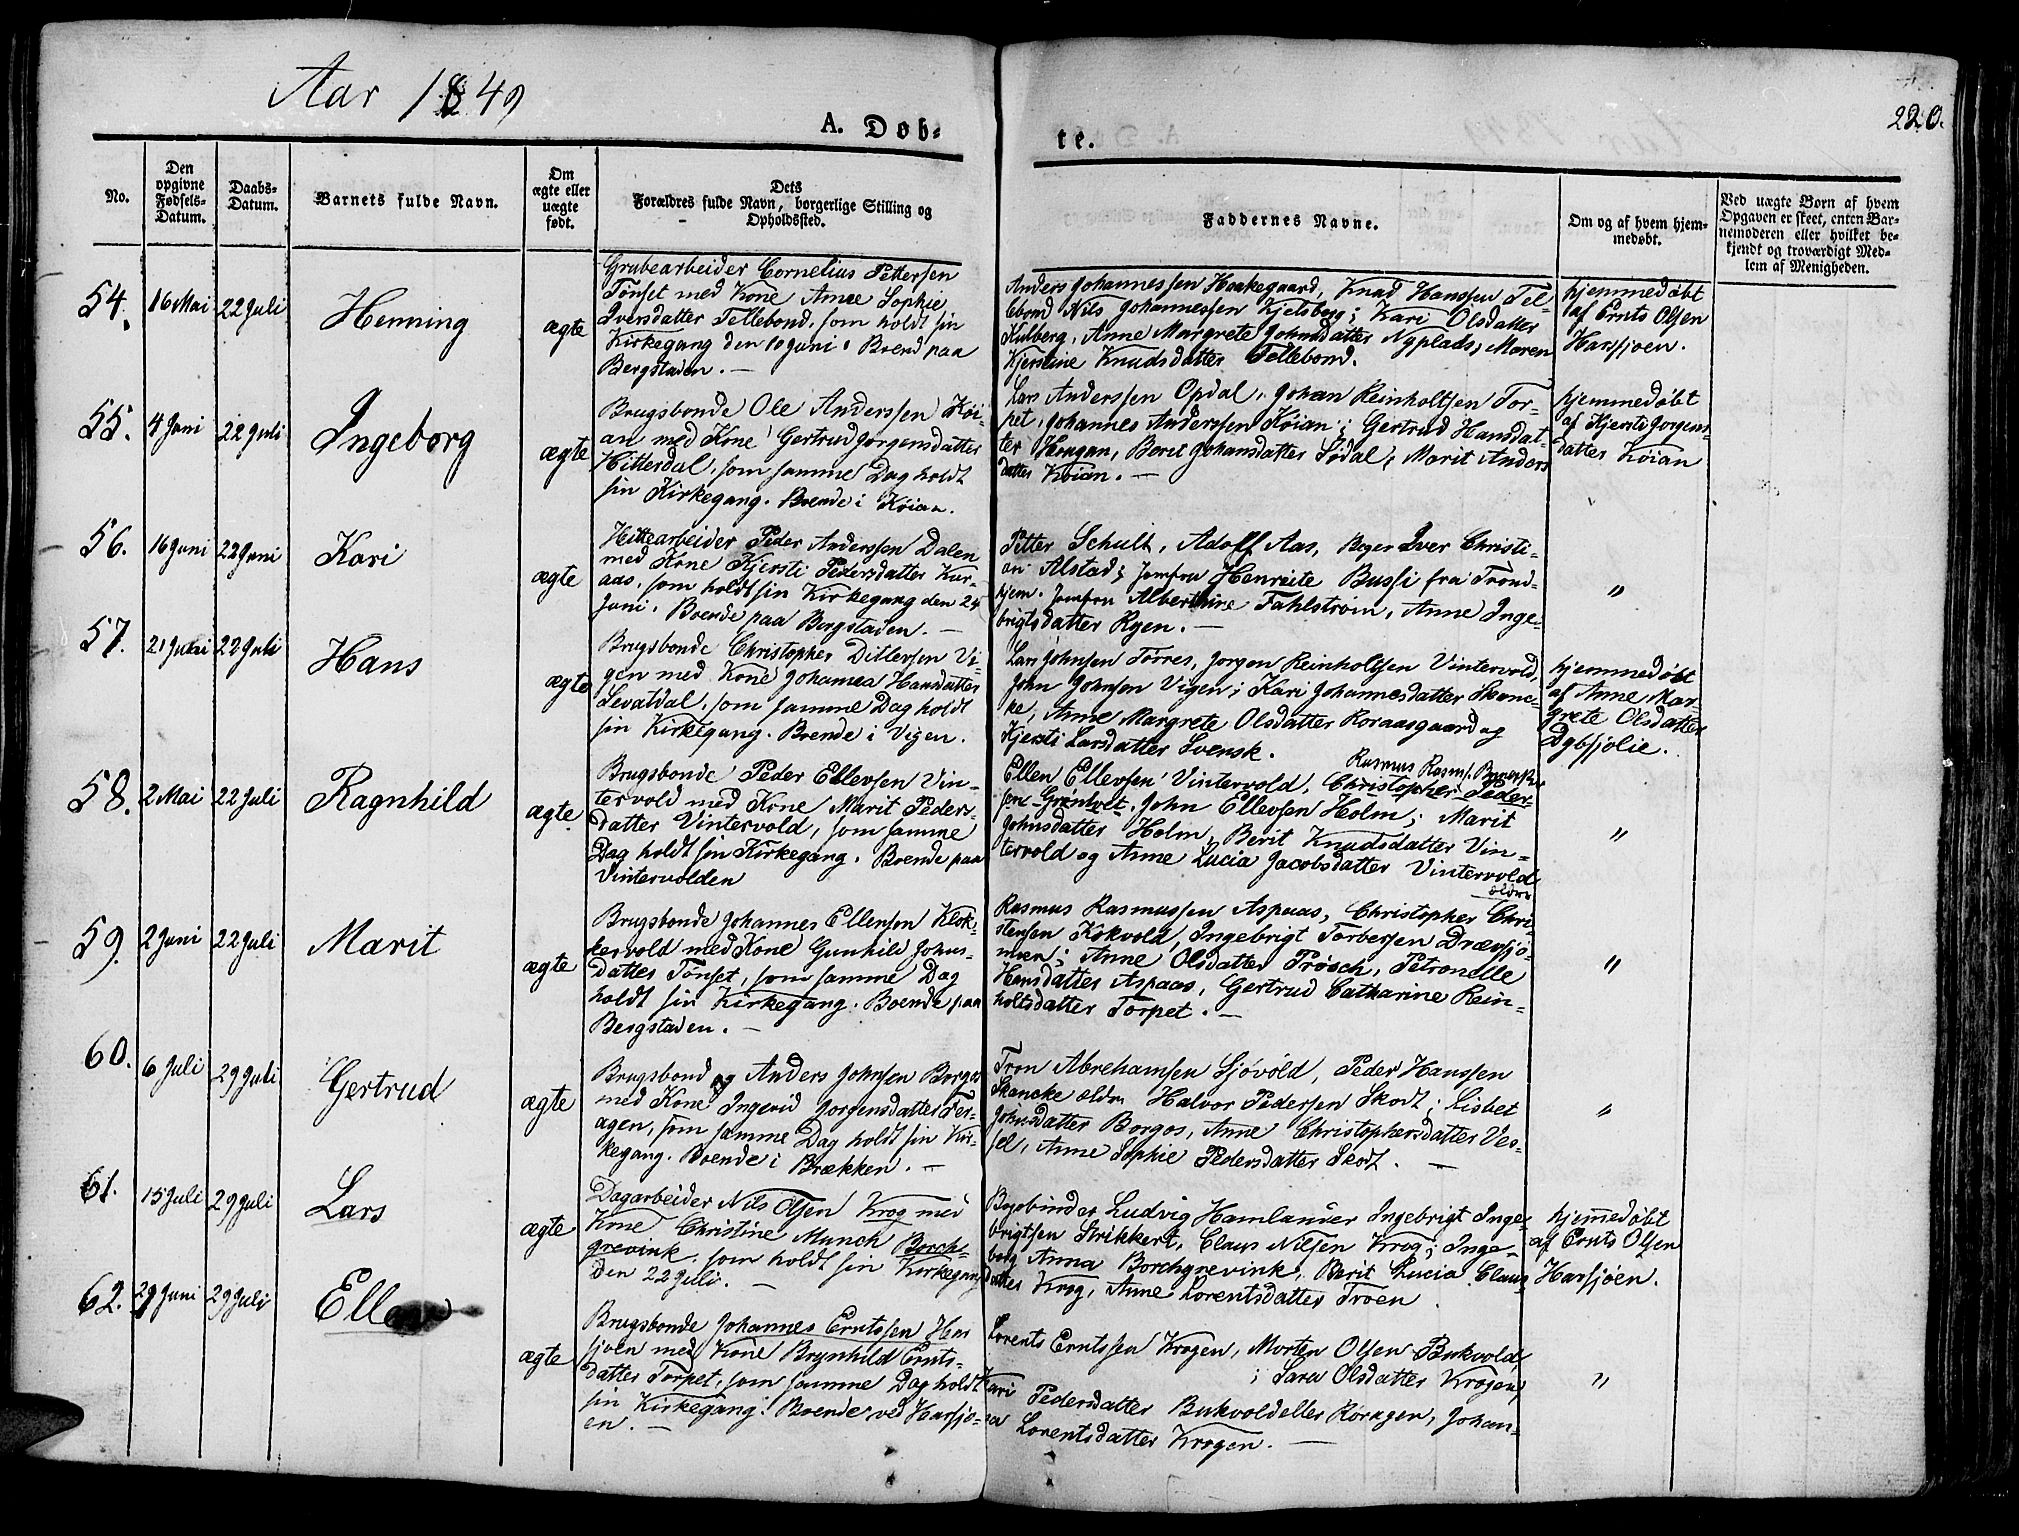 Aar 1849
A. Døb-
te.
220.
No.
Den opgivne Fødsels-Datum.
Daabs-Datum.
Barnets fulde Navn.
Om ægte eller uægte født.
Dets Forældres fulde Navn, borgerlige Stilling og Opholdssted.
Faddernes Navne.
Om og af hvem hjem-medøbt.
Ved uægte Børn af hvem Opgaven er skeet, enten Bar-nemoderen eller hvilket be-kjendt og troværdigt Med-lem af Menigheden.
54.
16 Mai
22 Juli
Henning
ægte
Grubearbeider Cornelius Pettersen
Tønset med Kone Anne Sophie
Iversdatter Tellebond, som holdt sin
Kirkegang den 10 Juni. Boend paa
Bergstaden. —
Anders Johannessen Haakegaard, Knud Hanssen Tel-
lebond Nils Johannessen Kjelsberg; Kari Olsdatter
Kulberg, Anne Margrete Johnsdatter Nyplads, Maren
Kjerstine Knudsdatter Tellebond.
hjemmedøbt
af Ernts Olsen
Harsjøen.
55.
4 Juni
22 Juli
Ingeborg
ægte
Brugsbonde Ole Anderssen Køi-
an med Kone Gertrud Jorgensdatter
Hitterdal, som samme Dag holdt
sin Kirkegang. Boende i Køian.
Lars Anderssen Opdal, Johan Reinholtsen Tor-
pet, Johannes Anderssen Køian; Gertrud Hansdat-
ter Haagan, Berit Johansdatter Sødal, Marit Anders
datter Køian. —
hjemmedøbt
af Kjersti Jorgens-
datter Køian
56.
16 Juni
22 Juni
Kari
ægte
Hittearbeider Peder Anderssen Dalen
med Kone Kjersti Pedersdatter Kur-
aas, som holdt sin Kirkegang den 24
Juni. Boende paa Bergstaden. —
Petter Schult, Adolf Aas, Boger Iver Christi-
an Alstad; Jomfru Henriete Bussi fra Trond-
hjem. Jomfru Alberthine Fahlstrøm, Anne Inge-
brigtsdatter Ryen. —
"
57.
21 Juni
22 Juli
Hans
ægte
Brugsbonde Christopher Ditlevsen Vi-
gen med Kone Johanna Hansdatter
Levaldal, som samme Dag holdt
sin Kirkegang. Boende i Vigen.
Lars Johnsen Torres, Jorgen Reinholtsen Vintervold,
John Johnsen Vigen; Kari Johannesdatter Skanc-
ke, Anne Margrete Olsdatter Roraasgaard og
Kjersti Larsdatter Svensk.
hjemmedøbt
af Anne Mar-
grete Olsdatter
Dybsjølie.
58.
2 Mai
22 Juli
Ragnhild
ægte
Brugsbonde Peder Ellevsen Vin-
tervold med Kone Marit Peders-
datter Vintervold, som samme
Dag holdt sin Kirkegang. Boende paa
Vintervolden
Rasmus Rasms.
Ellen Ellevsen Vintervold, Christopher Peder-
sen Grøntvet, John Ellevsen Holm; Marit
Johnsdatter Holm, Berit Knudsdatter Vin-
tervold og Anne Lucia Jacobsdatter Vintervold
"
59.
2 Juni
22 Juli
Marit
ægte
Brugsbonde Johannes Ellensøn Klok-
kervold med Kone Gunhild Johns-
datter Tønset, som samme Dag
holdt sin Kirkegang. Boende paa
Bergstaden. —
ældre
Rasmus Rasmussen Aspaas, Christopher Chri-
stensen Kokvold, Ingebrigt Torbersen Drævsjø-
moen; Anne Olsdatter Prøsch, Petronelle
Hansdatter Aspaas, Gertrud Catharine Rein-
holtsdatter Torpet. —
"
60.
6 Juli
29 Juli
Gertrud
ægte
Brugsbond og Anders Johnsen Borgos
med Kone Ingerid Jorgensdatter Fer-
agen, som samme Dag holdt sin Kir-
kegang. Boende i Brækken. —
Tron Abrahamsen Sjøvold, Peder Hanssen
Skancke ældr. Halvor Pedersen Skodt; Lisbet
Johnsdatter Borgos, Anne Christophersdatter Ves-
sel, Anne Sophie Pedersdatter Skodt. —
"
61.
15 Juli
29 Juli
Lars
ægte
Dagarbeider Nils Olsen Krog med
Kone Christine Munch Borch-
grevink, som holdt sin Kirkegang
den 22 Juli. —
Bogbinder Ludvig Hamlander Ingebrigt Inge-
brigtsen Strikkert, Claus Nilsen Krog; Inge-
borg Anna Borchgrevink, Berit Lucia Claus
datter Krog, Anne Lorentsdatter Troen.
hjemmedøbt
af Ernts Olsen
Harsjøen.
62.
29 Juni
29 Juli
Ellen
ægte
Brugsbonde Johannes Erntssen Har
sjøen med Kone Brynhild Ernts-
datter Torpet, som samme Dag holdt
sin Kirkegang. Boende ved Harsjø-
en. —
Lorents Erntssen Krogen, Morten Olsen Bukvold
; Sara Olsdatter Krogen,
Kari Pedersdatter Bukvold eller Røragen, Johan-
na Lorentsdatter Krogen. —
"